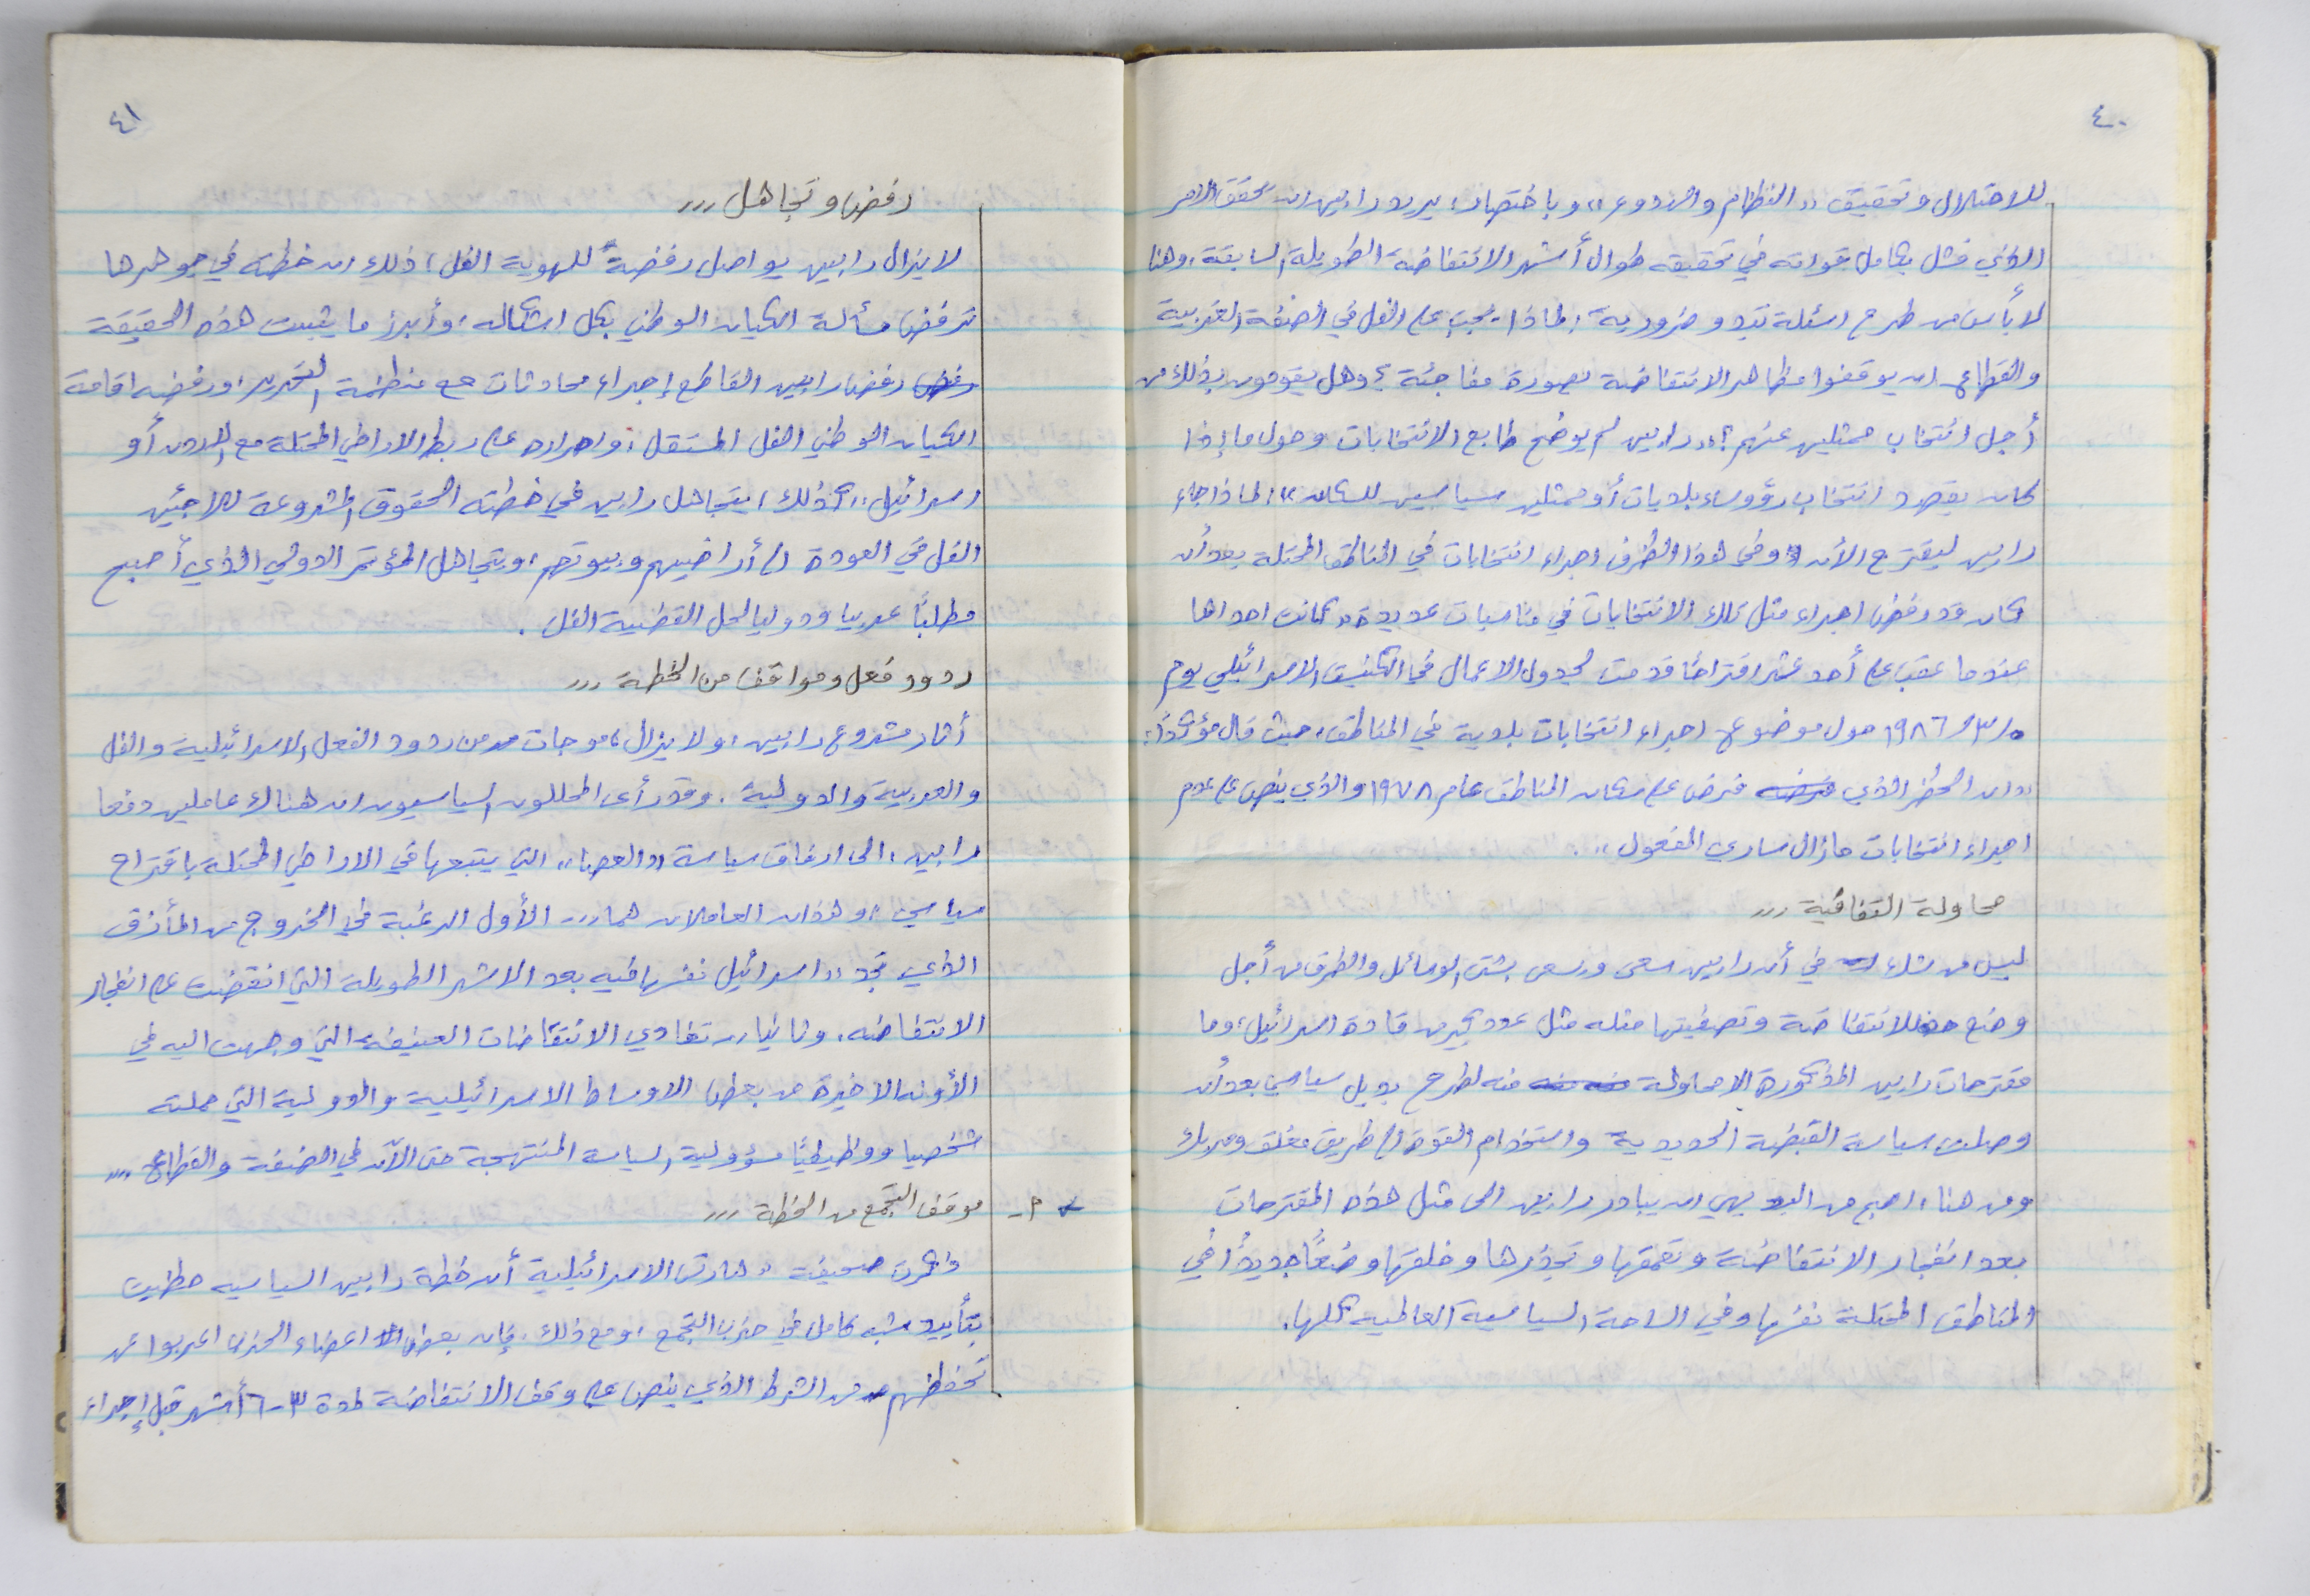 ٤٠
للاحتلال وتحقيق "النظام والهدوء" وباختصار، يريد رابين ان يحقق الامر
الذي فشل بكامل قواته في تحقيقه طوال أشهر الانتفاضة الطويلة السابقة، وهنا
لا بأس من طرح اسئلة تبدو ضرورية، لماذا يجب على الفل في الضفة الغربية
والقطاع ان يوقفوا مظاهر الانتفاضة بصورة مفاجئة؟ وهل يقومون بذلك من
أجل انتخاب ممثلين عنهم؟ "رابين لم يوضح طابع الانتخابات وحول ما إذا
كان يقصد انتخاب رؤوساء بلديات أو ممثلين سياسيين للسكان"، لماذا جاء
رابين ليقترح الآن وفي هذا الظرف اجراء انتخابات في المناطق المحتلة بعد أن
كان قد رفض اجراء مثل تلك الانتخابات في مناسبات عديدة "كانت احداها
عندما عقب على أحد عشر اقتراحًا قدمت لجدول الاعمال في الكنيست الاسرائيلي يوم
١٩٨٦/٣/٥ حول موضوع اجراء انتخابات بلدية في المناطق، حيث قال مؤكدًا:
"ان الحظر الذي فرض على سكان المناطق عام ١٩٧٨ والذي ينص على عدم
اجراء انتخابات مازال ساري المفعول".
محاولة التفافية ...
ليس من شك في أن رابين سعى ويسعى بشتى الوسائل والطرق من أجل
وضع حد للانتفاضة وتصفيتها مثله مثل عدد كبير من قادة اسرائيل، وما
مقترحات رابين المذكورة الا محاولة منه لطرح بديل سياسي بعد أن
وصلت سياسة القبضة الحديدية واستخدام القوة الى طريق مغلق ومربك
ومن هنا، اصبح من البديهي ان يبادر رابين الى مثل هذه المقترحات
بعد انفجار الانتفاضة وتعمقها وتجذرها وخلقها وضعًا جديدًا في
المناطق المحتلة نفسها وفي الساحة السياسية العالمية كلها.
٤١
رفض وتجاهل ...
لا يزال رابين يواصل رفضه للهوية الفل، ذلك ان خطته في جوهرها
ترفض مسألة الكيان الوطني بكل اشكاله، وأبرز ما يثبت هذه الحقيقة
رفض رابين القاطع إجراء محادثات مع منظمة التحرير، ورفضه اقامة
الكيان الوطني الفل المستقل، واصراره على ربط الاراضي المحتلة مع الاردن أو
اسرائيل، كذلك، يتجاهل رابين في خطته الحقوق المشروعة للاجئين
الفل في العودة الى أراضيهم وبيوتهم، ويتجاهل المؤتمر الدولي الذي أصبح
مطلبًا عربيا ودوليا لحل القضية الفل.
ردود فعل ومواقف من الخطة ...
أثار مشروع رابين، ولا يزال، موجات من ردود الفعل الاسرائيلية والفل
والعربية والدولية. وقد رأى المحللون السياسيون ان هناك عاملين دفعا
رابين، الى ارفاق سياسة "العصا" التي يتبعها في الاراضي المحتلة باقتراح
سياسي، وهذان العاملان هما ... الأول الرغبة في الخروج من المأزق
الذي تجد اسرائيل نفسها فيه بعد الاشهر الطويلة التي انقضت على انفجار
الانتفاضه. وثانيا .. تفادي الانتقاضات العنيفة التي وجهت اليه في
الأونه الاخيرة من بعض الاوساط الاسرائيلية والدولية التي حملته
شخصيا ووظيفيًا مسؤولية السياسة المنتهجة حتى الآن في الضفة والقطاع ...
٢- موقف التجمع من الخطة ...
ذكرت صحيفة "هآرتس الاسرائيلية أن خطة رابين السياسيه حظيت
بتأييد شبه كامل في حزب التجمع، ومع ذلك، فإن بعض اعضاء الحزب اعربوا عن
تحفظهم من الشرط الذي ينص على وقف الانتفاضة لمدة ٣-٦ أشهر قبل إجراء